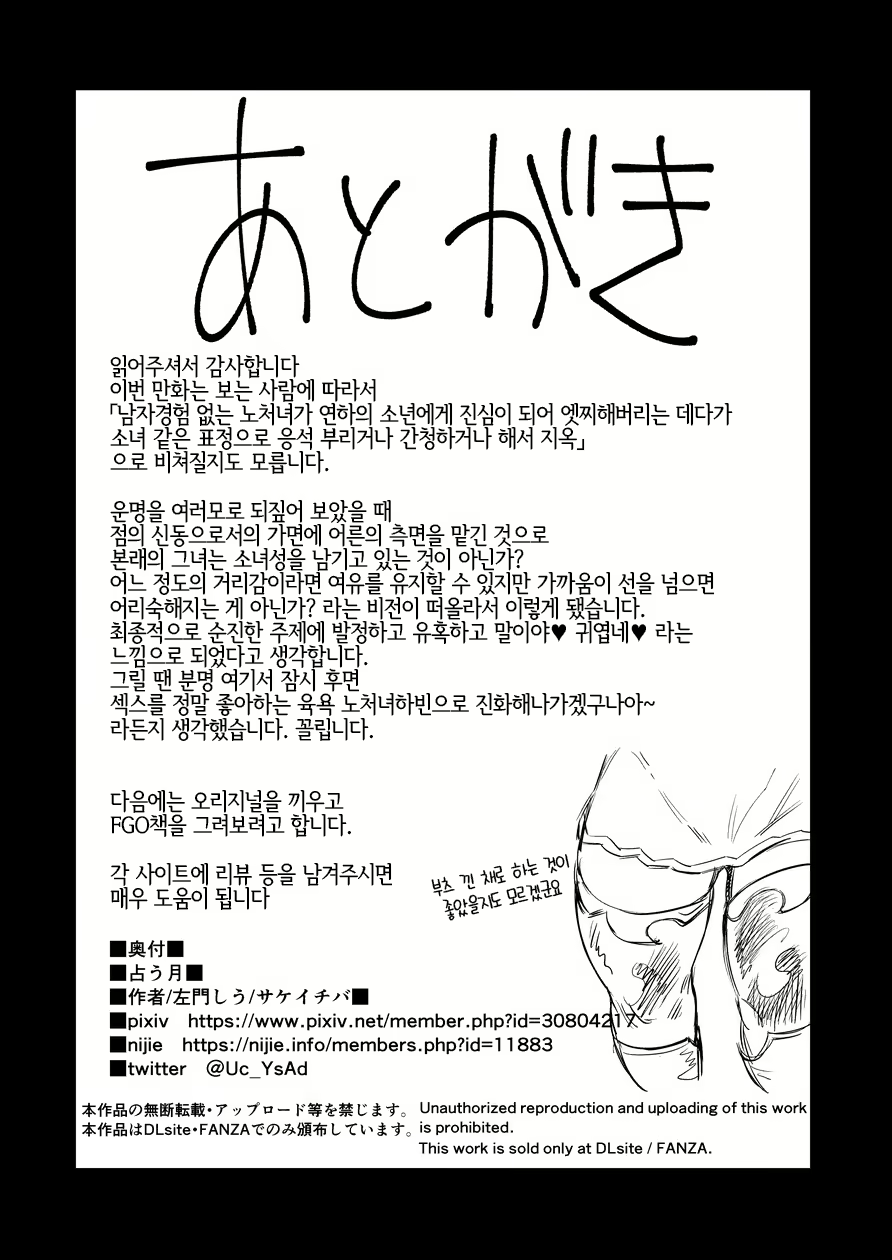 あとがき
읽어주셔서 감사합니다
이번 만화는 보는 사람에 따라서
「남자경험 없는 노처녀가 연하의 소년에게 진심이 되어 엣찌해버리는 데다가
소녀 같은 표정으로 응석 부리거나 간청하거나 해서 지옥」
으로 비쳐질지도 모릅니다.
운명을 여러모로 되짚어 보았을 때
점의 신동으로서의 가면에 어른의 측면을 맡긴 것으로
본래의 그녀는 소녀성을 남기고 있는 것이 아닌가?
어느 정도의 거리감이라면 여유를 유지할 수 있지만 가까움이 선을 넘으면
어리숙해지는 게 아닌가? 라는 비전이 떠올라서 이렇게 됐습니다.
최종적으로 순진한 주제에 발정하고 유혹하고 말이야♥ 귀엽네♥ 라는
느낌으로 되었다고 생각합니다.
그릴 땐 분명 여기서 잠시 후면
섹스를 정말 좋아하는 육욕 노처녀하빈으로 진화해나가겠구나아~
라든지 생각했습니다. 꼴립니다.
다음에는 오리지널을 끼우고
FGO책을 그려보려고 합니다.
각 사이트에 리뷰 등을 남겨주시면
매우 도움이 됩니다
부츠 낀 채로 하는 것이
좋았을지도 모르겠군요
■奥付■
■占う月■
■作者/左門しう/サケイチバ■
■pixiv　https://www.pixiv.net/member.php?id=30804217
■nijie　https://nijie.info/members.php?id=11883
■twitter　@Uc_YsAd
本作品の無断転載・アップロード等を禁じます。
本作品はDLsite・FANZAでのみ頒布しています。
Unauthorized reproduction and uploading of this work
is prohibited.
This work is sold only at DLsite / FANZA.